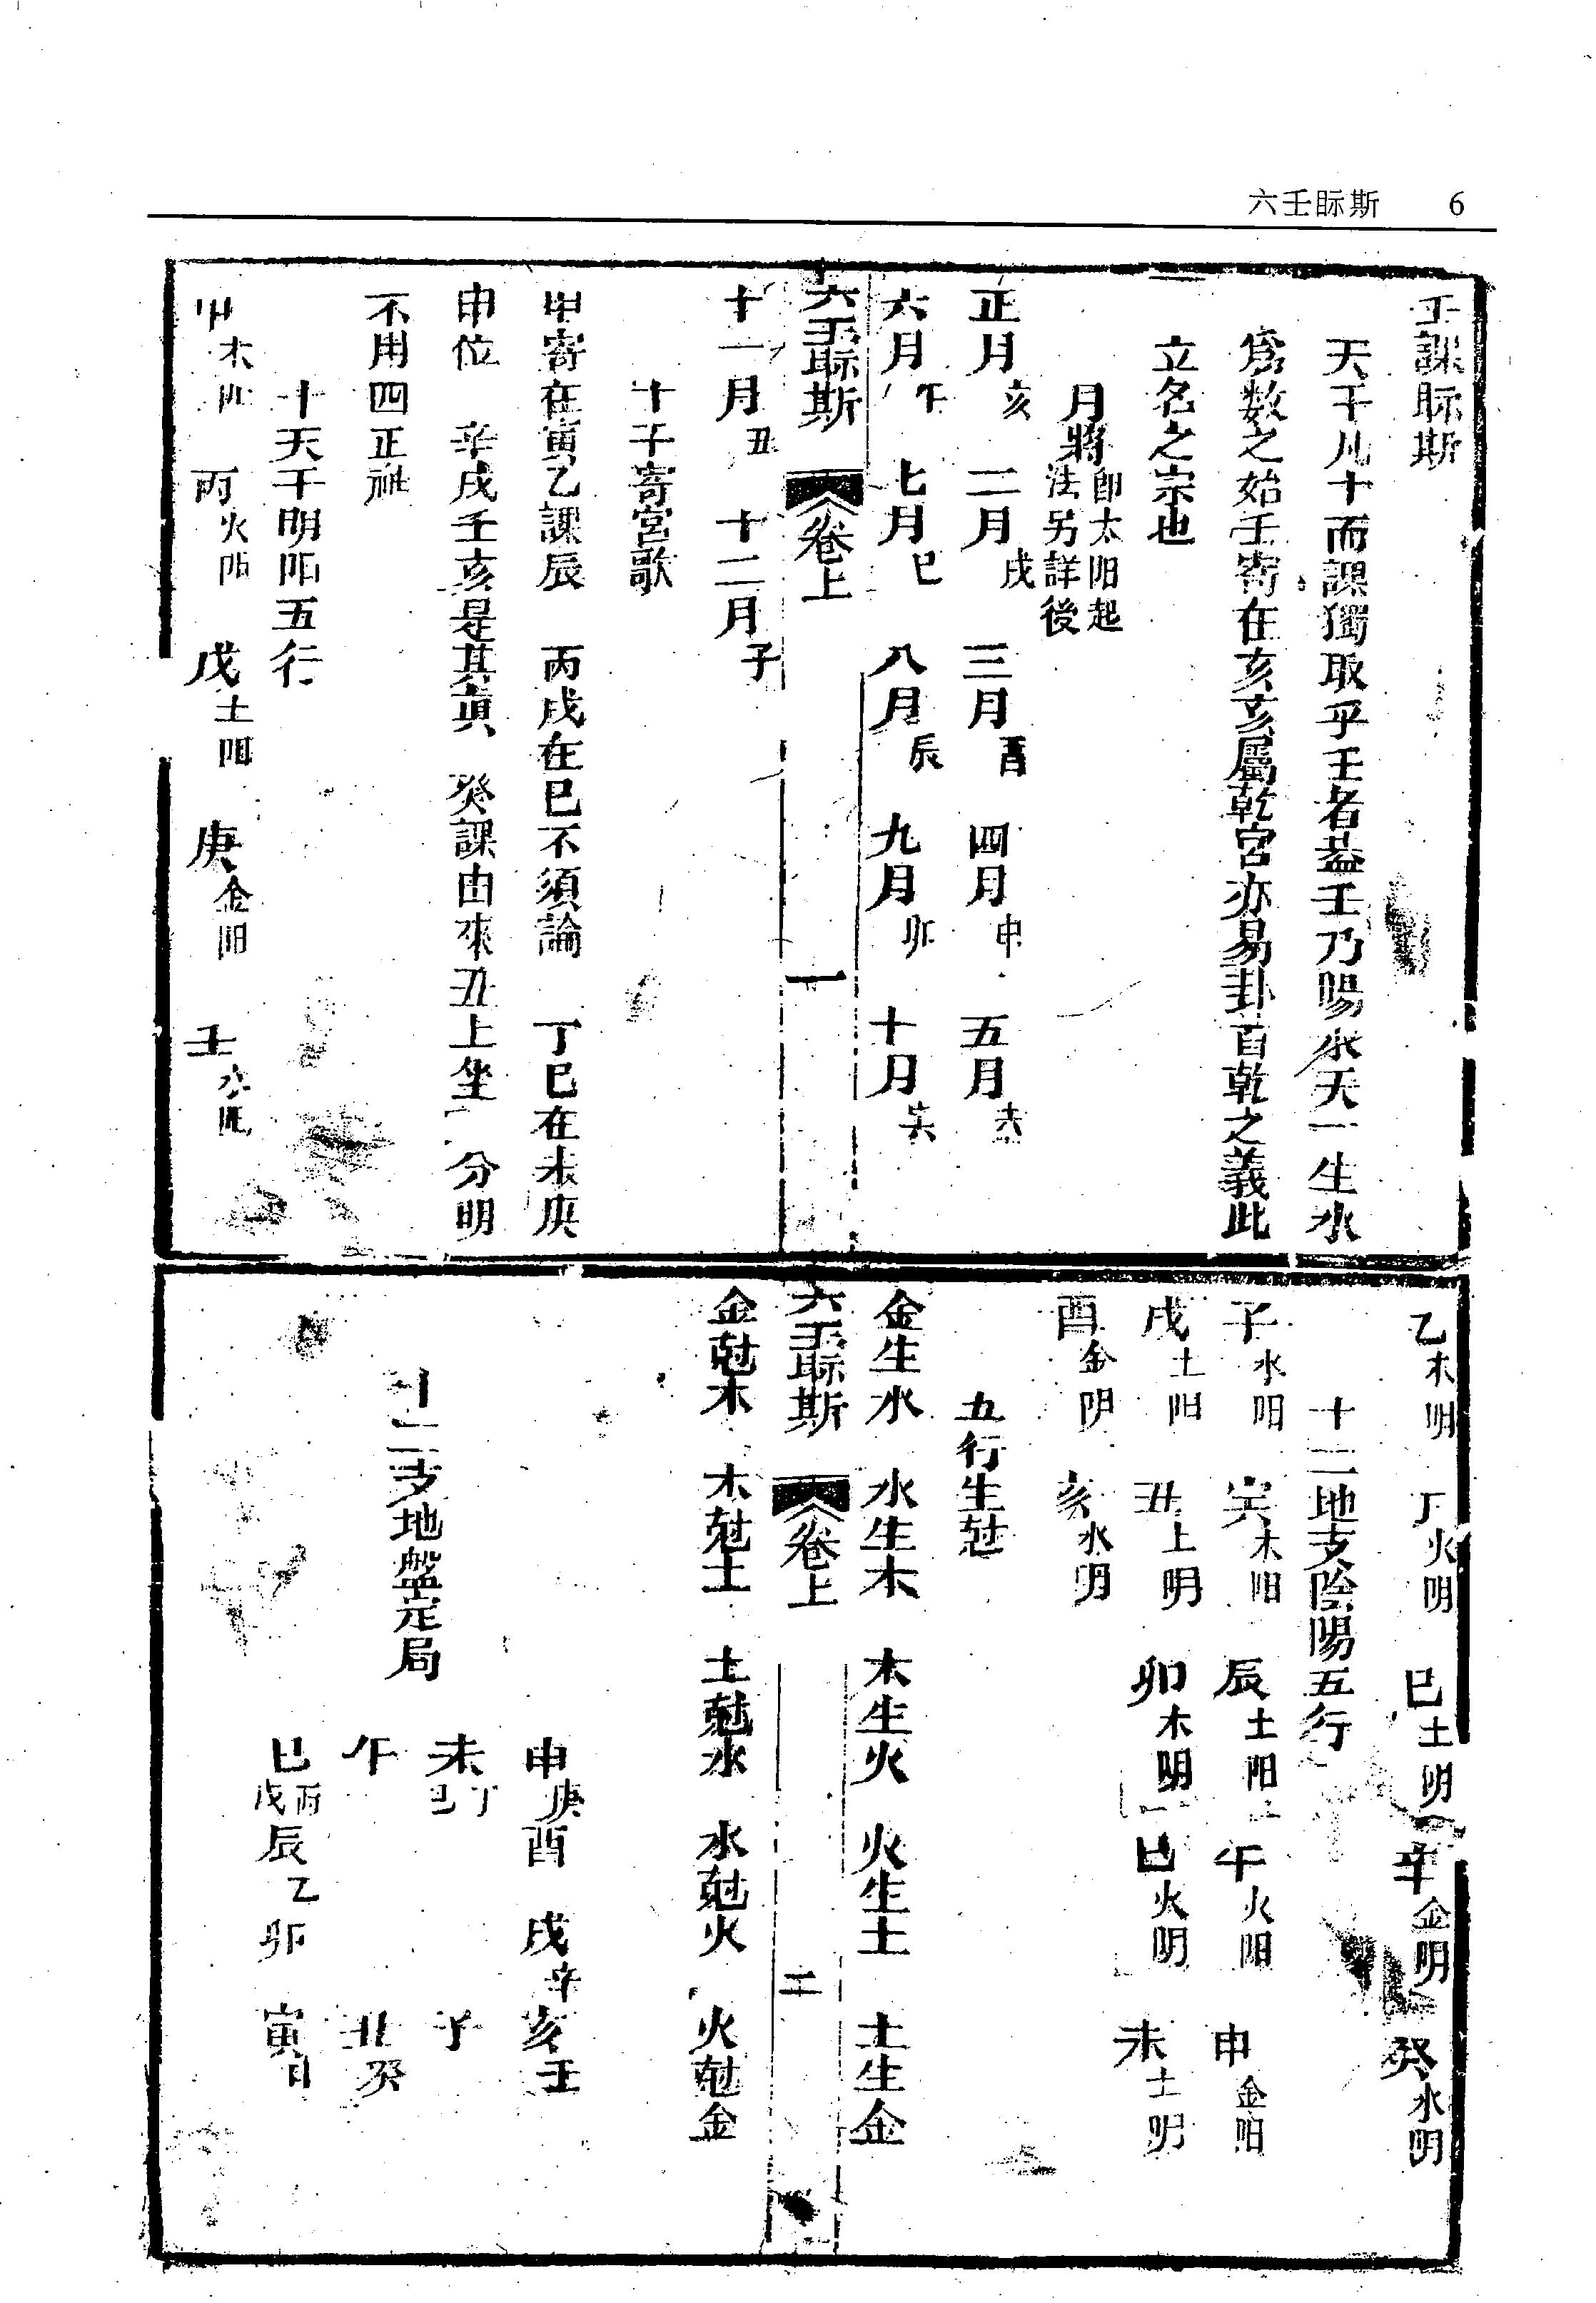 六壬眎斯 6
壬課眎斯
天干凡十而課獨取乎壬者葢壬乃陽水天一生水
爲數之始壬寄在亥亥屬乾宮亦易卦首乾之義此
立名之宗也
月將 卽太阳起法另詳後
正月亥 二月戌 三月酉 四月申 五月未
六月午 七月巳 八月辰 九月卯 十月寅
六壬眎斯 卷上 一
十一月丑 十二月子
十干寄宮歌
甲寄在寅乙課辰 丙戌在巳不須論 丁巳在未庚
申位 辛戌壬亥是其眞 癸課由來丑上坐 分明
不用四正神
十天干明阳五行
甲木阳 丙火阳 戊土阳 庚金阳 壬水阳
乙木明 丁火明 巳土明 辛金明 癸水明
十二地支陰陽五行
子水阳 寅木阳 辰土阳 午火阳 申金阳
戌土阳 丑土明 卯木明 巳火明 未土明
酉金阴 亥水明
五行生尅
金生水 水生木 木生火 火生土 土生金
六壬眎斯 卷上 二
金尅木 木尅土 土尅水 水尅火 火尅金
申庚酉 戌辛亥壬
未丁巳 子
十二支地盤定局
午 丑癸
巳丙戊辰乙卯 寅甲